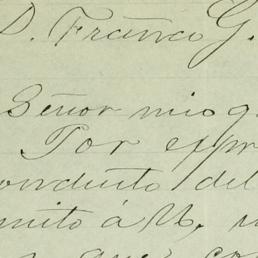 D. Franco G.
Señor mio q.
Por expr
onducto del
mito á U,
que co